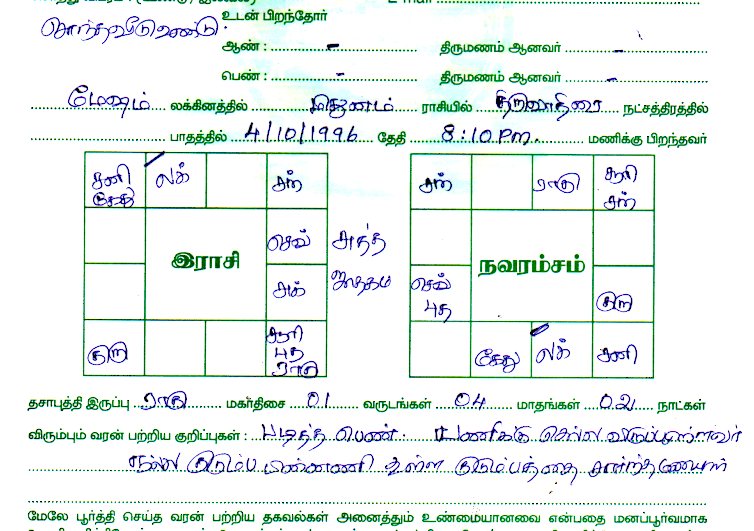 சொந்தவீடு உண்டு.
உடன் பிறந்தோர்
ஆண் : - திருமணம் ஆனவர் -
பெண் : - திருமணம் ஆனவர் -
மேஷம் லக்கினத்தில் மிதுனம் ராசியில் திருவாதிரை நட்சத்திரத்தில்
பாதத்தில் 4/10/1996 தேதி 8:10 P.m. மணிக்கு பிறந்தவர்
சனி கேது லக் சந் சந் ராகு சூரி சந்
செவ் சுத்த ஜாதகம்
இராசி நவாம்சம்
சுக் செவ் புத குரு
குரு சூரி புத ராகு கேது லக் சனி
தசாபுத்தி இருப்பு ராகு மகாதிசை 01 வருடங்கள் 04 மாதங்கள் 02 நாட்கள்
விரும்பும் வரன் பற்றிய குறிப்புகள் : படித்த பெண். பணிக்கு செல்ல விருப்பமுள்ளவர்
நல்ல குடும்ப பின்னணி உள்ள குடும்பத்தை சார்ந்த
மேலே பூர்த்தி செய்த வரன் பற்றிய தகவல்கள் அனைத்தும் உண்மையானவை என்பதை மனப்பூர்வமாக